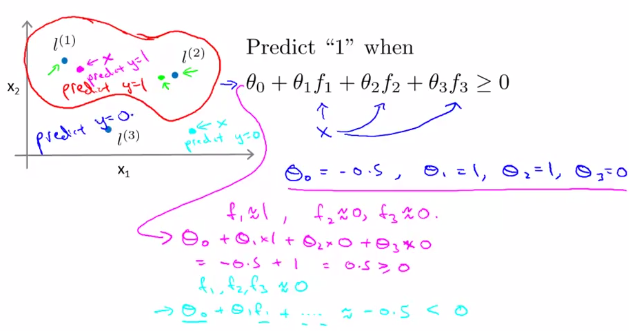 l⁽¹⁾
← x
predict y=1
l⁽²⁾
predict y=1
x₂
predict y=0.
l⁽³⁾
← x
predict y=0
x₁
Predict “1” when
→ θ₀ + θ₁f₁ + θ₂f₂ + θ₃f₃ ≥ 0
x
θ₀ = -0.5 , θ₁ = 1, θ₂ = 1, θ₃ = 0
f₁ ≈ 1 , f₂ ≈ 0, f₃ ≈ 0.
→ θ₀ + θ₁×1 + θ₂×0 + θ₃×0
= -0.5 + 1 = 0.5 ≥ 0
f₁, f₂, f₃ ≈ 0
→ θ₀ + θ₁f₁ + .... ≈ -0.5 < 0